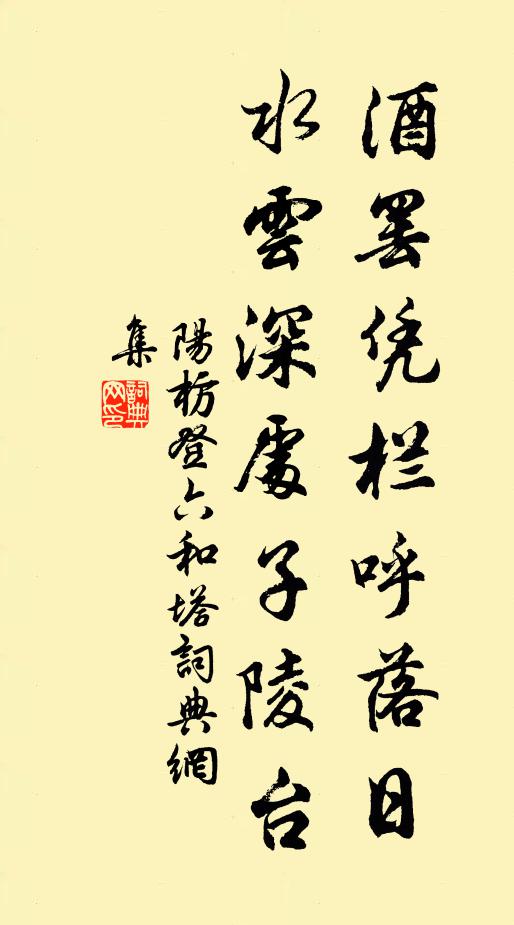 酒罢凭栏呼落日
水雲深處子陵台
陽枋登六和塔詞典網
集
詞典网印